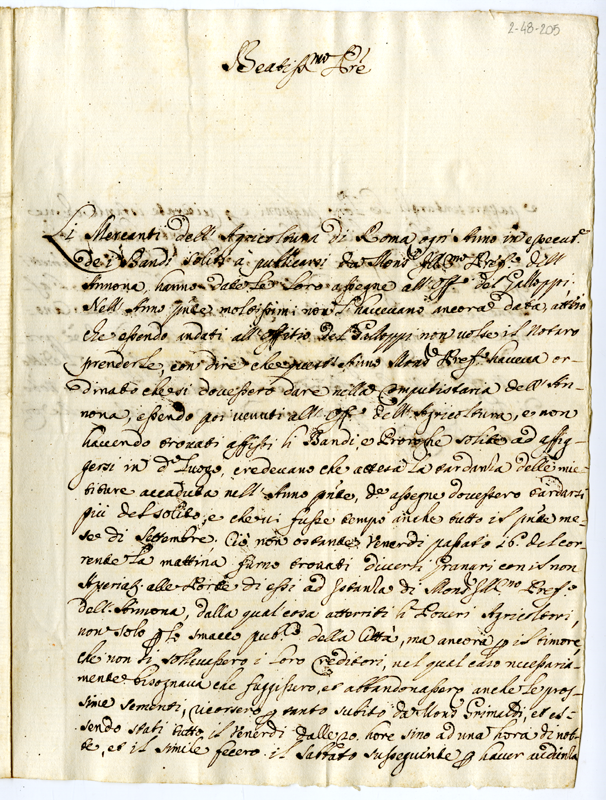 2-48-205
Beatiss.mo Pre
Li Mercanti dell'Agricoltura di Roma ogni Anno in essecuz.e
de i Bandi soliti a publicarsi da Mons.r Ill.mo Pref.o dell'
Annona, hanno date le loro assegne all'Off.o del Galloppi
Nell'Anno pnte moltissimi non l'havevano ancora data, atteso
che essendo andati all'Offitio del Galloppi non volse il Notaro
prenderle, con dire che quest'Anno Mons.r Pref.o haveva or-
dinato che si dovessero dare nella Computistaria dell'An-
nona, essendo poi venuti all'Off.o dell'Agricoltura, e non
havendo trovati affissi li Bandi, e Proroghe solite ad affig-
gersi in d.o Luogo, credevano che attesa la tardanza delle mie-
titure accaduta nell'Anno pnte, d.e assegne dovessero tardarsi
più del solito, e che vi fusse tempo anche tutto il pnte me-
se di Settembre. Ciò non ostante Venerdì passato 16. del cor-
rente la mattina furno trovati diversi Granari con il non
Aperiat. alle Porte di essi ad Istanza di Mons.r Ill.mo Pref.o
dell'Annona, dalla qual cosa atterriti li Poveri Agricoltori,
non solo p lo smacco publ.o della Città, ma ancora p il timore,
che non si sollevassero i loro Creditori, nel qual caso necessaria-
mente bisognava che fuggissero, et abbandonassero anche le pros-
sime sementi, ricorsero p tanto subito da Mons.r Grimaldi, et es-
sendo stati tutto il Venerdì dalle 20. hore sino ad una hora di not-
te, et il simile fecero il Sabbato susseguente p haver audienza